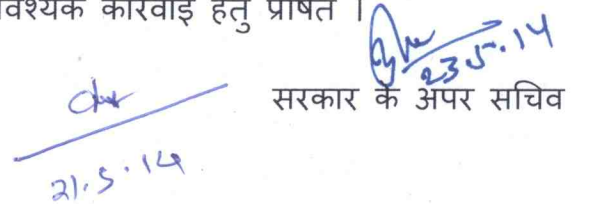 वश्यक कारवाई हेतु प्रेषित ।
23.5.14
सरकार के अपर सचिव
21.5.14